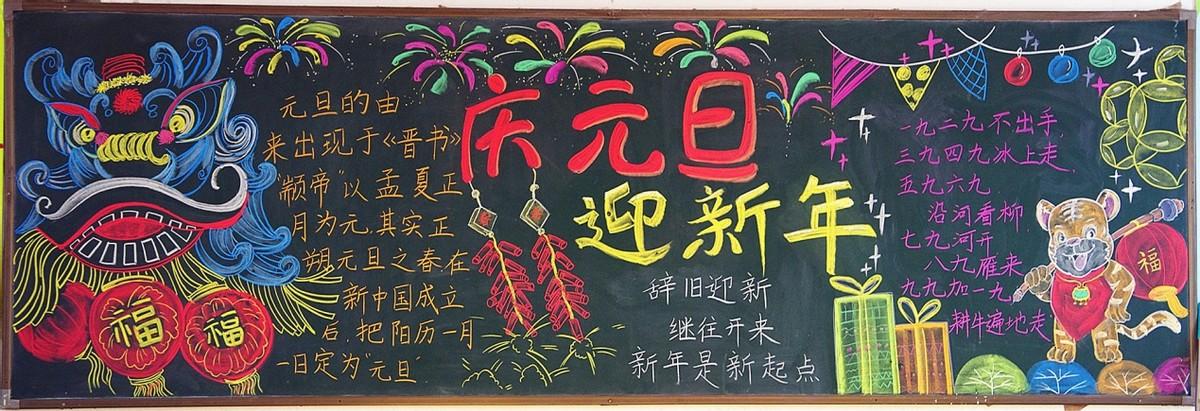 福
福
元旦的由
来出现于《晋书》
"颛帝"以孟夏正
月为元,其实正
朔元旦之春.在
新中国成立
后,把阳历一月
一日定为"元旦"
庆元旦
迎新年
辞旧迎新
继往开来
新年是新起点
一九二九不出手,
三九四九冰上走,
五九六九,
沿河看柳,
七九河开
八九雁来
九九加一九,
耕牛遍地走
福